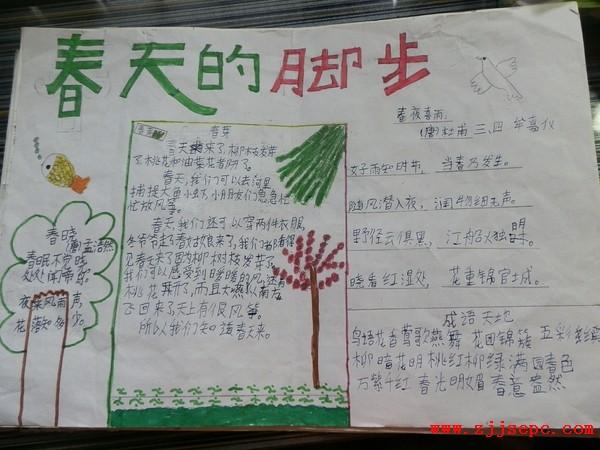 春天的脚步
春夜喜雨
(唐)杜甫 三、四 牟嘉仪
好雨知时节，当春乃发生。
随风潜入夜，润物细无声。
野径云俱黑，江船火独明。
晓看红湿处，花重锦官城。
成语天地
鸟语花香 莺歌燕舞 花团锦簇 五彩缤纷
柳暗花明 桃红柳绿 满园春色
万紫千红 春光明媚 春意盎然
春芽
春天来了，柳枝发芽
了，桃花和油菜花都开了。
春天，我们可以去河里
捕捉大鱼小虾，小朋友们急急忙
忙放风筝。
春天，我们还可以穿两件衣服，
桃花开了，而且大燕从南方
飞回来了，天上有很多风筝。
所以我们知道春天来。
春晓
(唐)孟浩然
春眠不觉晓，
处处闻啼鸟。
夜来风雨声，
花落知多少。
www.zjjsepc.com